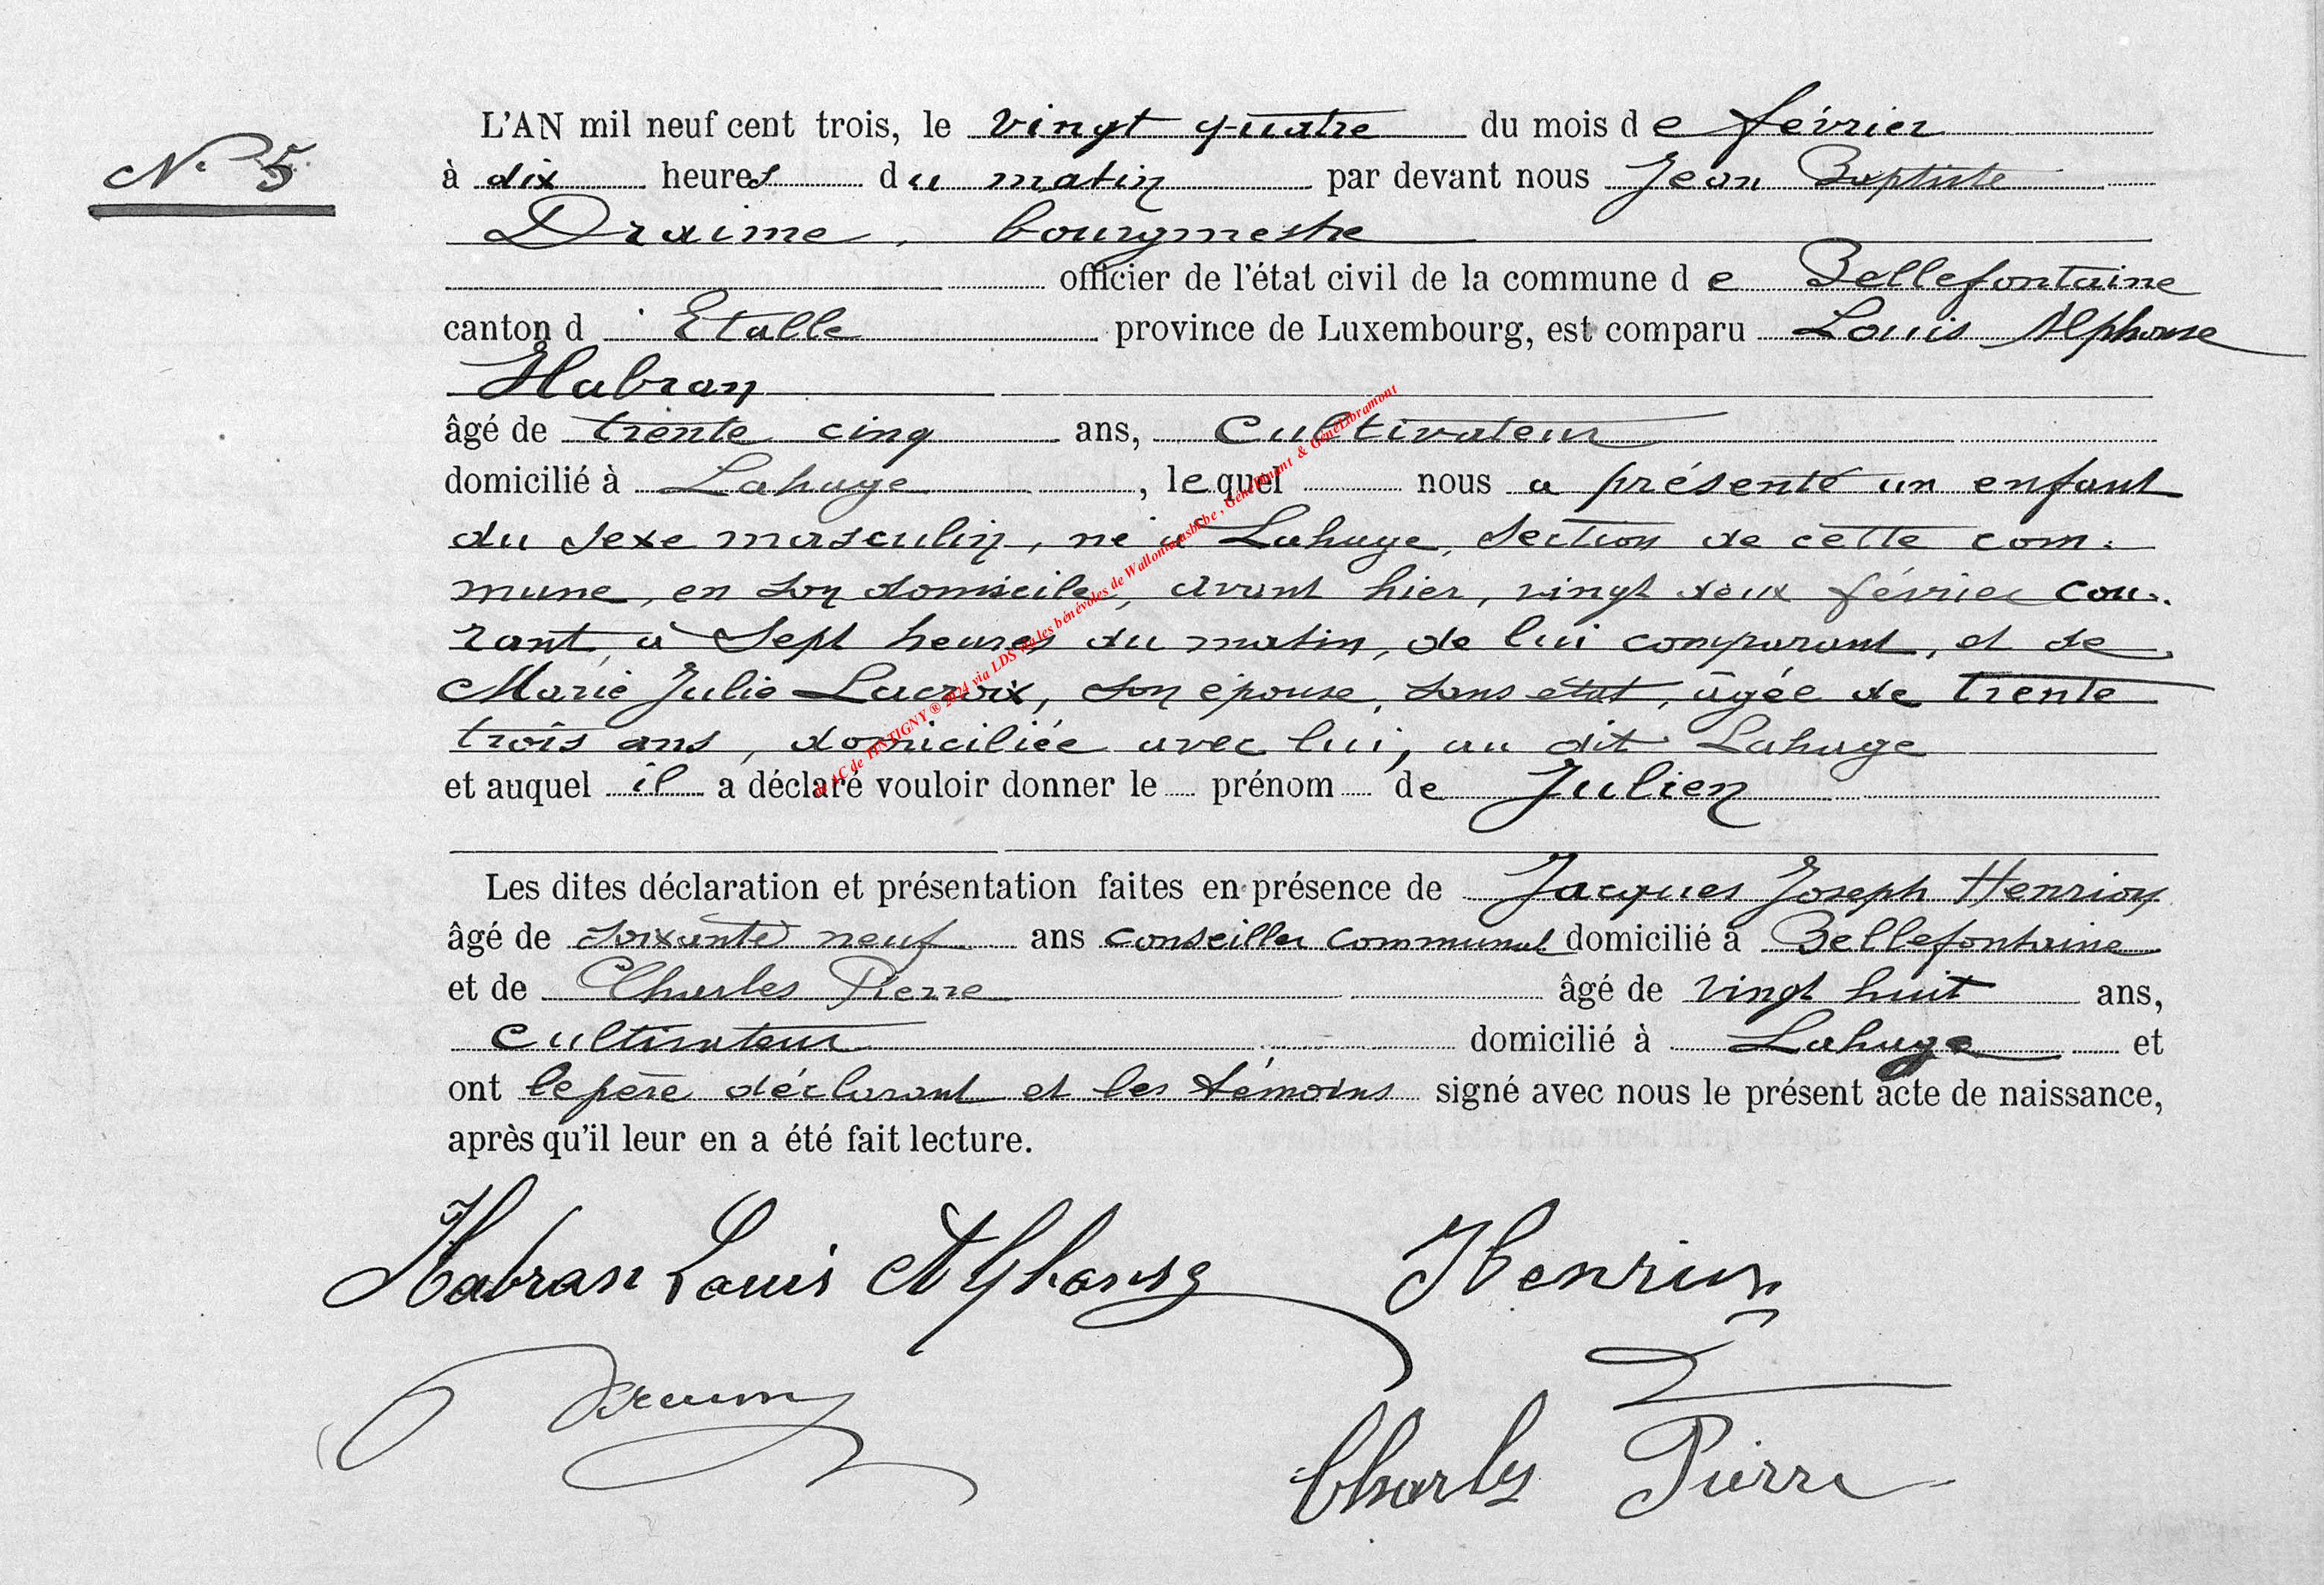 N. 5
L'AN mil neuf cent trois, le vingt quatre du mois de février
à dix heures du matin par devant nous Jean Baptiste
Draime, bourgmestre
officier de l'état civil de la commune de Bellefontaine
canton d'Etalle province de Luxembourg, est comparu Louis Alphonse
Habran
âgé de trente cinq ans, cultivateur
domicilié à Lahage, lequel nous a présenté un enfant
du sexe masculin, né à Lahage, section de cette com-
mune, en son domicile, avant hier, vingt deux février cou-
rant, à sept heures du matin, de lui comparant, et de
Marie Julie Lacroix, son épouse, sans état, âgée de trente
trois ans, domiciliée avec lui, au dit Lahage
et auquel il a déclaré vouloir donner le prénom de Julien
Les dites déclaration et présentation faites en présence de Jacques Joseph Henrion
âgé de soixante neuf ans conseiller communal domicilié à Bellefontaine
et de Charles Pierre âgé de vingt huit ans,
cultivateur domicilié à Lahage et
ont le père déclarant et les témoins signé avec nous le présent acte de naissance,
après qu'il leur en a été fait lecture.
Habran Louis Alphonse Henrion
Draime
Charles Pierre
AC de TINTIGNY ® 2024 via LDS les bénévoles de Wallonie &  GénéLibramont